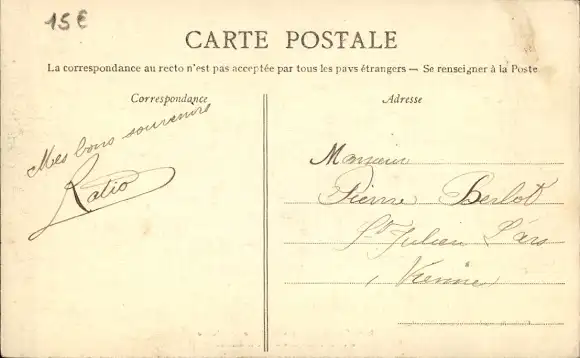 15€
CARTE POSTALE
La correspondance au recto n'est pas acceptée par tous les pays étrangers — Se renseigner à la Poste
Correspondance
Mes bons souvenirs
Ratio
Adresse
Monsieur
Pierre Berlot
St Julien L'ars
Vienne